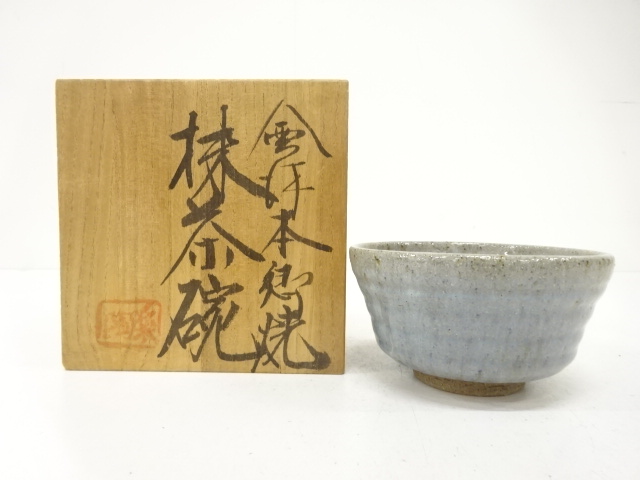 会津本郷焼
抹茶碗